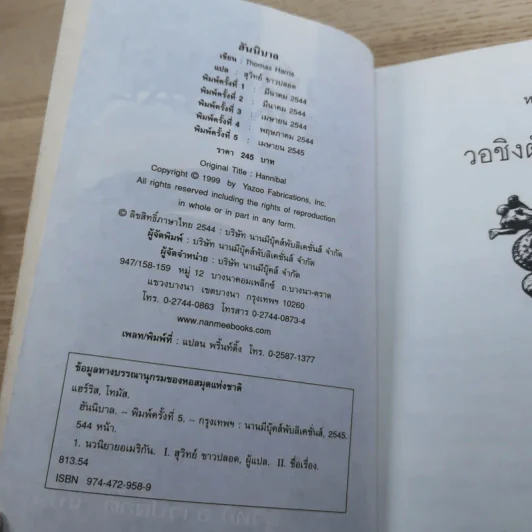 ฮันนิบาล
เขียน : Thomas Harris
แปล : สุวิทย์ ขาวปลอด
พิมพ์ครั้งที่ 1 : มีนาคม 2544
พิมพ์ครั้งที่ 2 : มีนาคม 2544
พิมพ์ครั้งที่ 3 : เมษายน 2544
พิมพ์ครั้งที่ 4 : พฤษภาคม 2544
พิมพ์ครั้งที่ 5 : เมษายน 2545
ราคา 245 บาท
Original Title : Hannibal
Copyright © 1999 by Yazoo Fabrications, Inc.
All rights reserved including the rights of reproduction
in whole or in part in any form.
© ลิขสิทธิ์ภาษาไทย 2544 : บริษัท นานมีบุ๊คส์พับลิเคชั่นส์ จำกัด
ผู้จัดพิมพ์ : บริษัท นานมีบุ๊คส์พับลิเคชั่นส์ จำกัด
ผู้จัดจำหน่าย : บริษัท นานมีบุ๊คส์ จำกัด
947/158-159 หมู่ 12 บางนาคอมเพล็กซ์ ถ.บางนา-ตราด
แขวงบางนา เขตบางนา กรุงเทพฯ 10260
โทร. 0-2744-0863 โทรสาร 0-2744-0873-4
www.nanmeebooks.com
เพลท/พิมพ์ที่ : แปลน พริ้นท์ติ้ง โทร. 0-2587-1377
ข้อมูลทางบรรณานุกรมของหอสมุดแห่งชาติ
แฮร์ริส, โทมัส.
ฮันนิบาล. – พิมพ์ครั้งที่ 5. – กรุงเทพฯ : นานมีบุ๊คส์พับลิเคชั่นส์, 2545.
544 หน้า.
1. นวนิยายอเมริกัน. I. สุวิทย์ ขาวปลอด, ผู้แปล. II. ชื่อเรื่อง.
813.54
ISBN 974-472-958-9
วอชิงตั